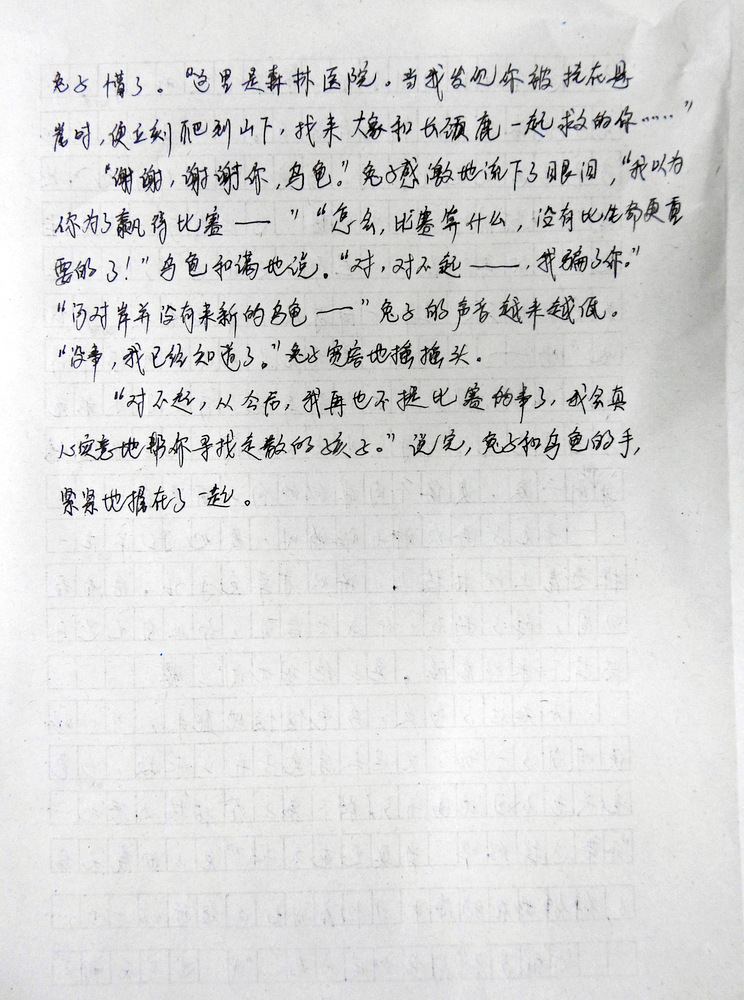 兔子懵了。“这里是森林医院。当我发现你被挂在悬
崖时,便立刻爬到山下,找来大象和长颈鹿一起救的你……”
“谢谢,谢谢你,乌龟。”兔子感激地流下了眼泪,“我以为
你为了赢得比赛——”“怎么,比赛算什么,没有比生命更重
要的了!”乌龟和蔼地说。“对,对不起——,我骗了你。”
“河对岸并没有来新的乌龟——”兔子的声音越来越低。
“没事,我已经知道了。”兔子宽容地摇摇头。
“对不起,从今后,我再也不提比赛的事了,我会真
心实意地帮你寻找走散的孩子。”说完,兔子和乌龟的手,
紧紧地握在了一起。